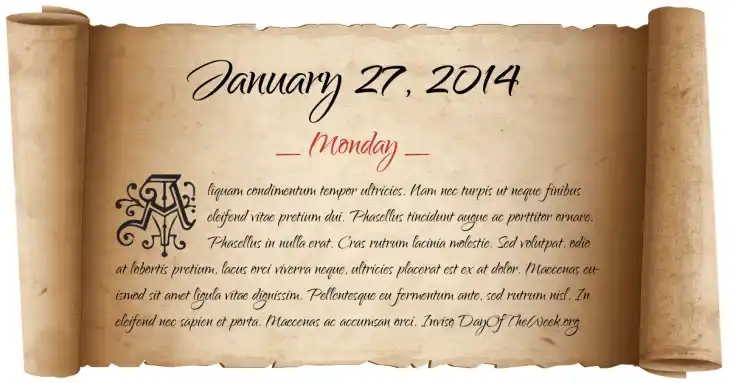 January 27, 2014
— Monday —
Aliquam condimentum tempor ultricies. Nam nec turpis ut neque finibus
eleifend vitae pretium dui. Phasellus tincidunt augue ac porttitor ornare.
Phasellus in nulla erat. Cras rutrum lacinia molestie. Sed volutpat, odio
at lobortis pretium, lacus orci viverra neque, ultricies placerat est ex at dolor. Maecenas eu-
ismod sit amet ligula vitae dignissim. Pellentesque eu fermentum ante, sed rutrum nisl. In
eleifend nec sapien et porta. Maecenas ac accumsan orci. Inviso DayOfTheWeek.org